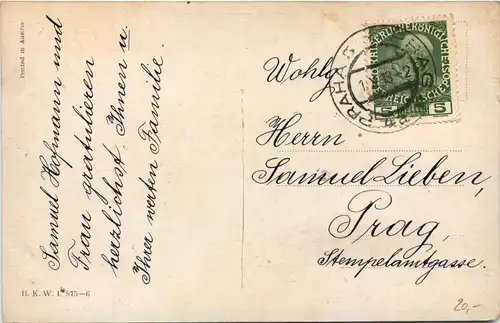 Printed in Austria
Samuel Hofmann und
Frau gratulieren
herzlichst Ihnen u.
Ihrer werten Familie.
B. K. W. I. 875—6
PRAHA 5
5
Wohlg
Herrn
Samuel Lieben,
Prag,
Stempelamtgasse.
20,-